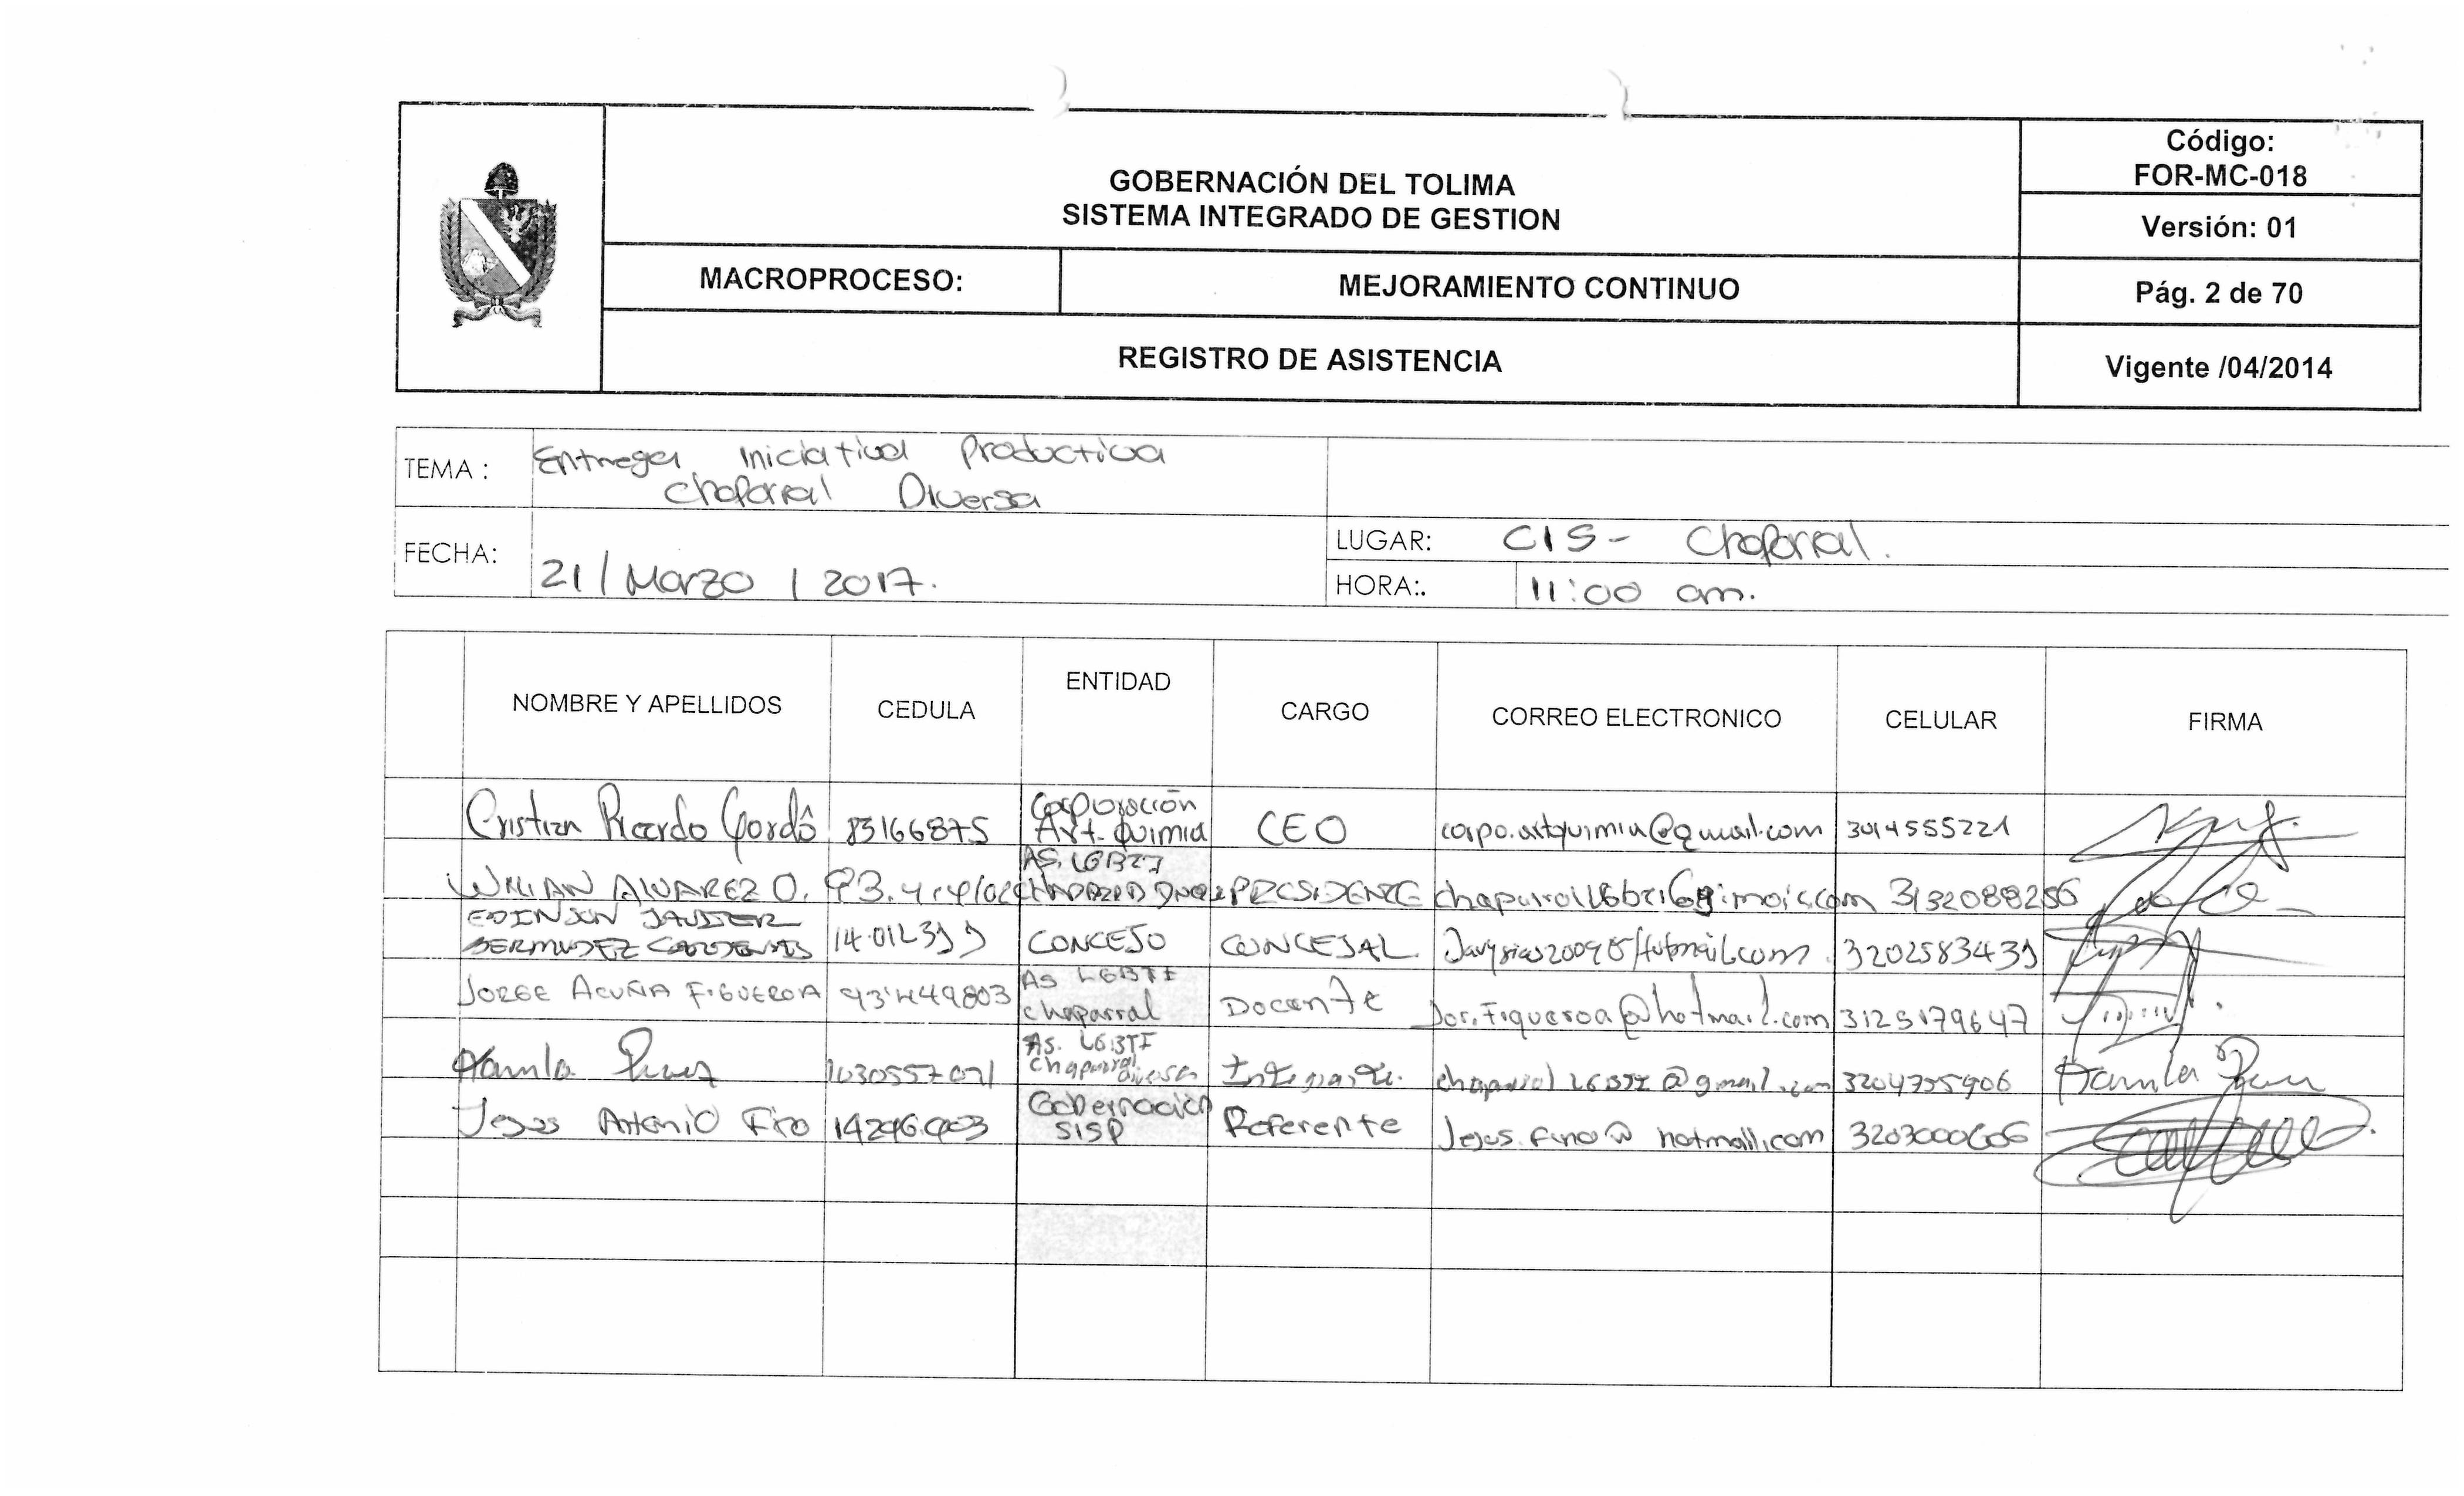 Código:
FOR-MC-018
GOBERNACIÓN DEL TOLIMA
SISTEMA INTEGRADO DE GESTION
Versión: 01
MACROPROCESO:
MEJORAMIENTO CONTINUO
Pág. 2 de 70
REGISTRO DE ASISTENCIA
Vigente /04/2014
TEMA :
Entrega Iniciativa Productiva
Chaparral Diversa
FECHA:
21/Marzo / 2017.
LUGAR: CIS- Chaparral.
HORA:. 11:00 am.
NOMBRE Y APELLIDOS CEDULA ENTIDAD CARGO CORREO ELECTRONICO CELULAR FIRMA
Cristian Ricardo 83166875
Corporación
Art-Quimia
CEO corpo.artquimia@gmail.com 3014555221
AS. LGBTI
ALVAREZ O. PRESIDENTE 3132088256
EDINSON JAVIER
BERMUDEZ CARDENAS
CONCEJO CONCEJAL 3202583439
JORGE ACUÑA FIGUEROA
AS LGBTI
chaparral
Docente Jor.Figueroa@hotmail.com 3125179647
Kamila
1030557071
As. LGBTI
Chaparral
diversa
Integrante. chaparralLGBTI@gmail.com 3204755906 Kamila
Jesus Antonio Fino
Gobernación
SISP
Referente Jesus.fino@hotmail.com 3203000606